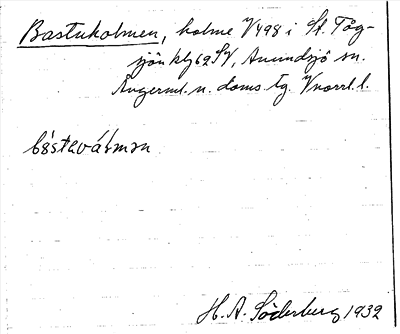 Bastuholmen, holme V498 i St. Tåg-
sjön kbl 62 SV, Anundsjö sn.
Ångerml. n. doms. tg. Vnorrl. l.
bástavåɫmən
H. A. Söderberg 1932